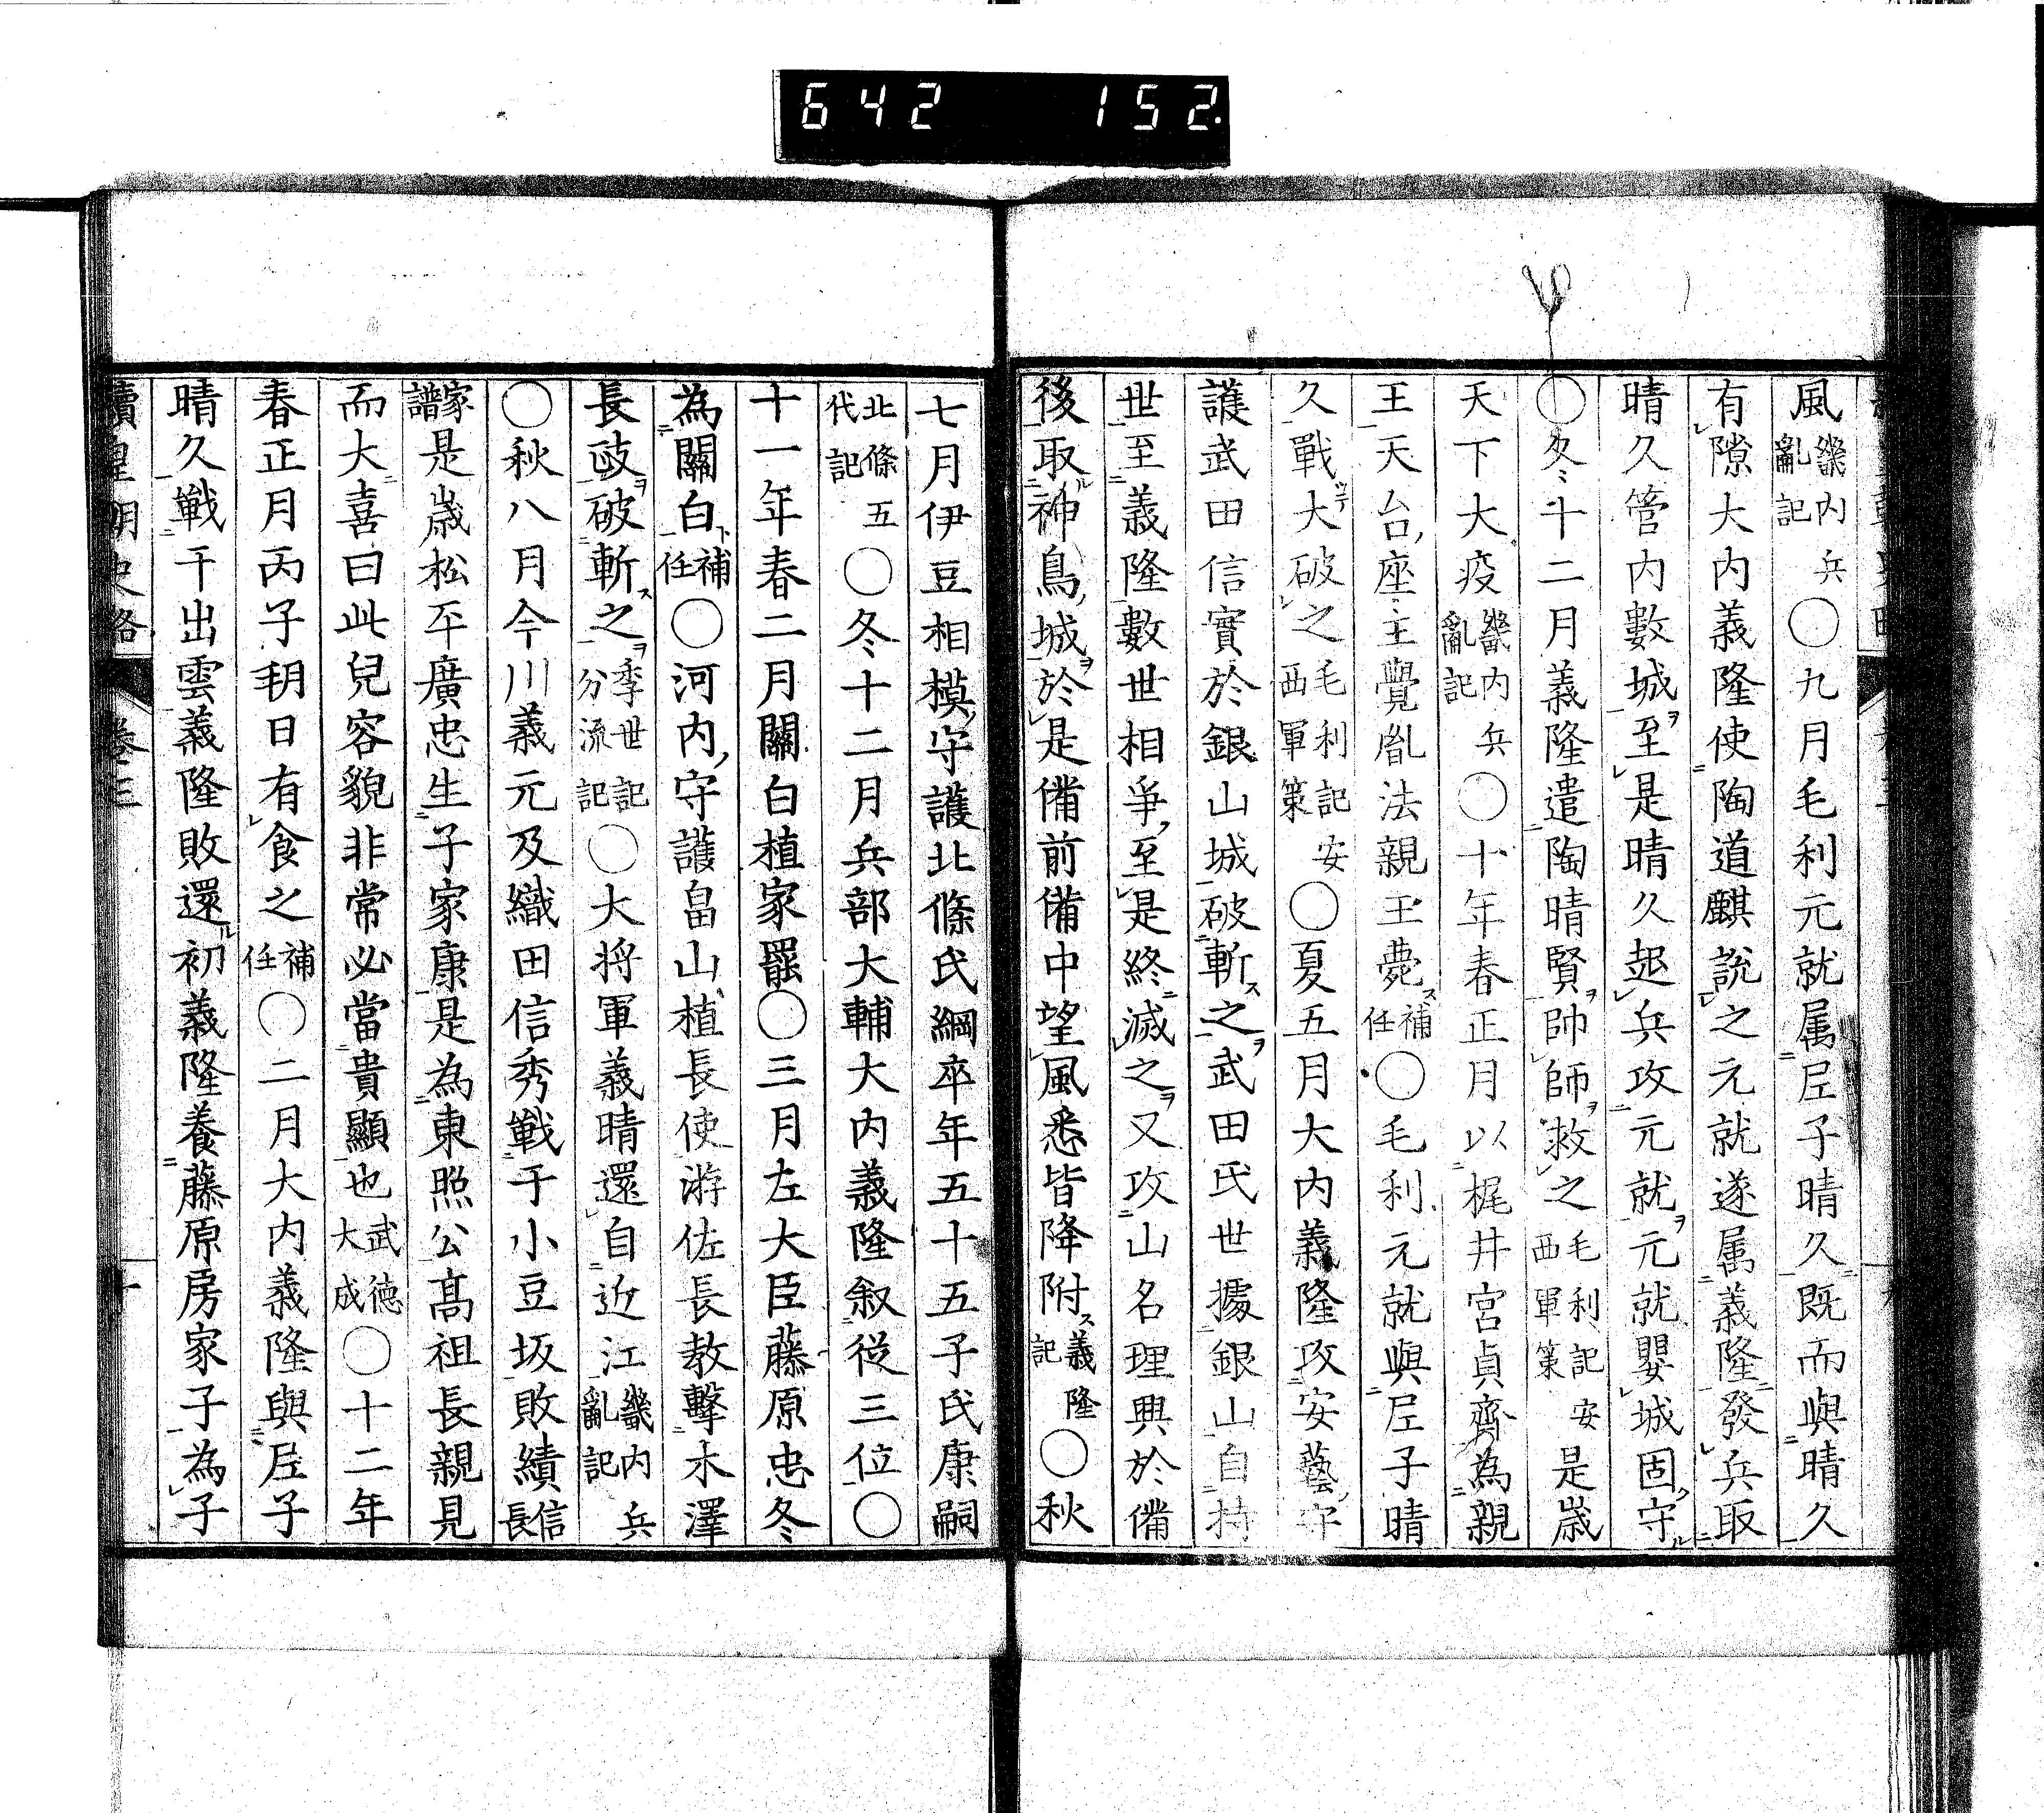 642 152
風畿内兵亂記〇九月毛利元就属𡰱子晴久既而與晴久
有隙大内義隆使陶道麒說之元就遂属義隆發兵取
晴久管内數城至是晴久起兵攻元就元就嬰城固守
〇冬十二月義隆遣陶晴賢帥師救之毛利記安西軍策是歳
天下大疫畿内兵亂記〇十年春正月以梶井宮貞齊為親
王天台座主覺胤法親王薨補任〇毛利元就與𡰱子晴
久戰大破之毛利記安西軍策〇夏五月大内義隆攻安藝守
護武田信實於銀山城破斬之武田氏世據銀山自持
世至義隆數世相爭至是終滅之又攻山名理興於備
後取神鳥城於是備前備中望風悉皆降附義隆記〇秋
七月伊豆相模守護北條氏綱卒年五十五子氏康嗣
北條五代記〇冬十二月兵部大輔大内義隆叙從三位〇
十一年春二月關白植家罷〇三月左大臣藤原忠冬
為關白補任〇河内守護畠山植長使游佐長教擊木澤
長政破斬之季世記分流記〇大将軍義晴還自近江畿内兵亂記
〇秋八月今川義元及織田信秀戰于小豆坂敗績信長
家譜是歳松平廣忠生子家康是為東照公高祖長親見
而大喜曰此兒容貌非常必當貴顯也武徳大成〇十二年
春正月丙子朔日有食之補任〇二月大内義隆與𡰱子
晴久戰于出雲義隆敗還初義隆養藤原房家子為子
續皇朝史略 卷三 十